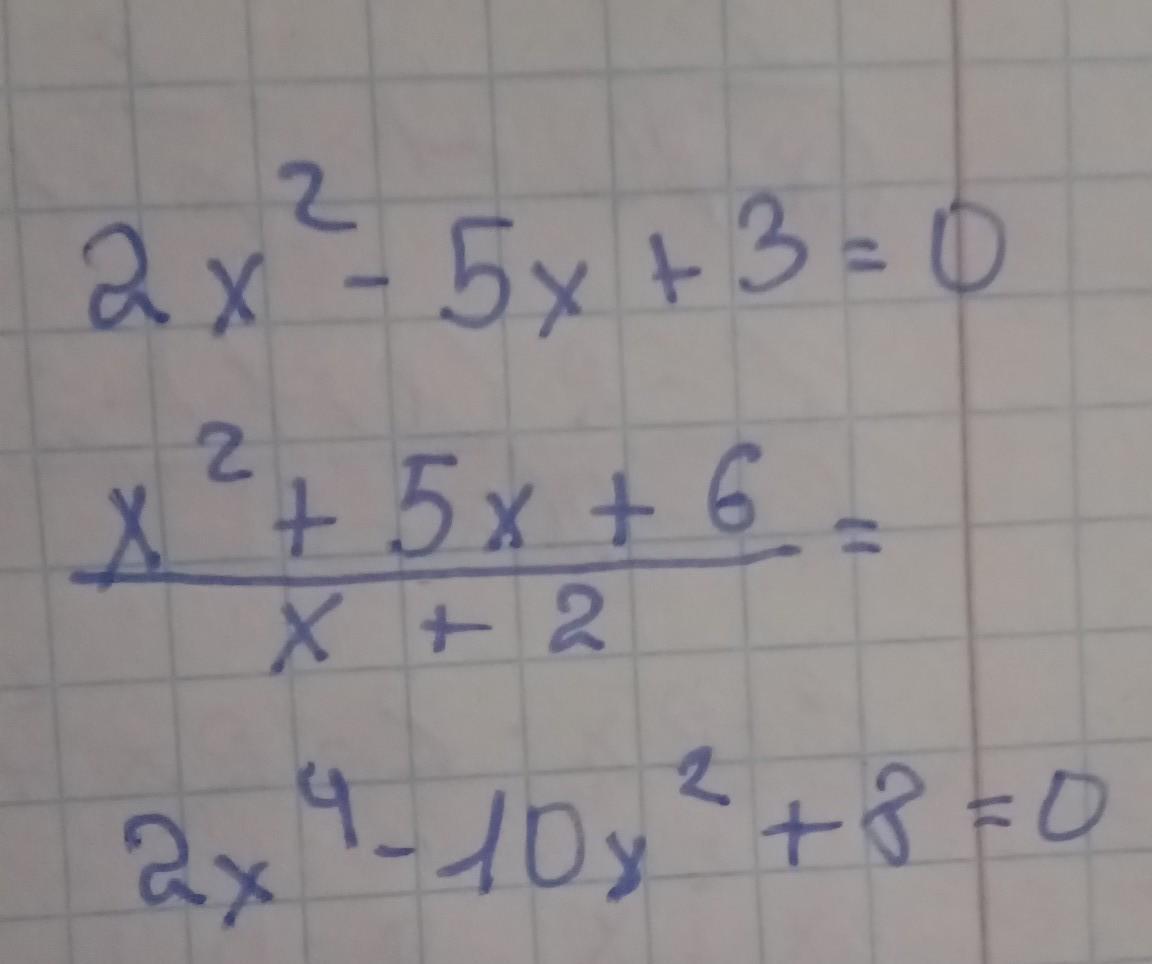 2x² - 5x + 3 = 0
x² + 5x + 6 =
x + 2
2x⁴ - 10x² + 8 = 0